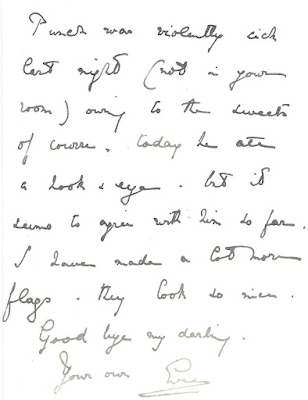 Punch was violently sick
last night (not in your
room) owing to the sweets
of course. today he ate
a hook & eye. but it
seems to agree with him so far.
I have made a lot more
flags. they look so nice.
Good bye my darling.
Your own